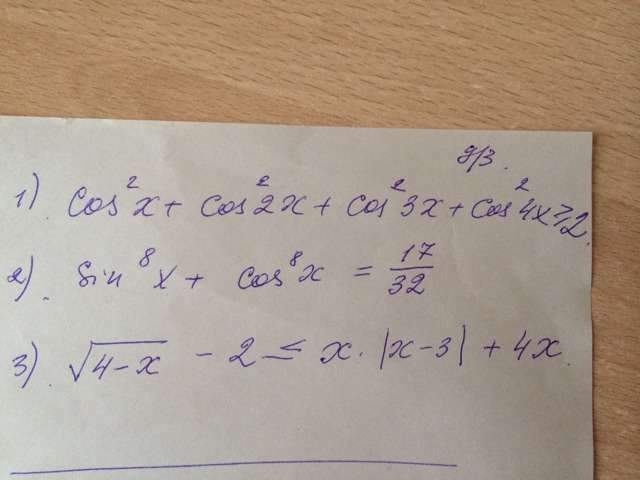 д/з.
1) cos²x + cos²2x + cos²3x + cos²4x ≥ 2.
2) sin⁸x + cos⁸x = 17/32
3) √(4-x) - 2 ≤ x · |x-3| + 4x.